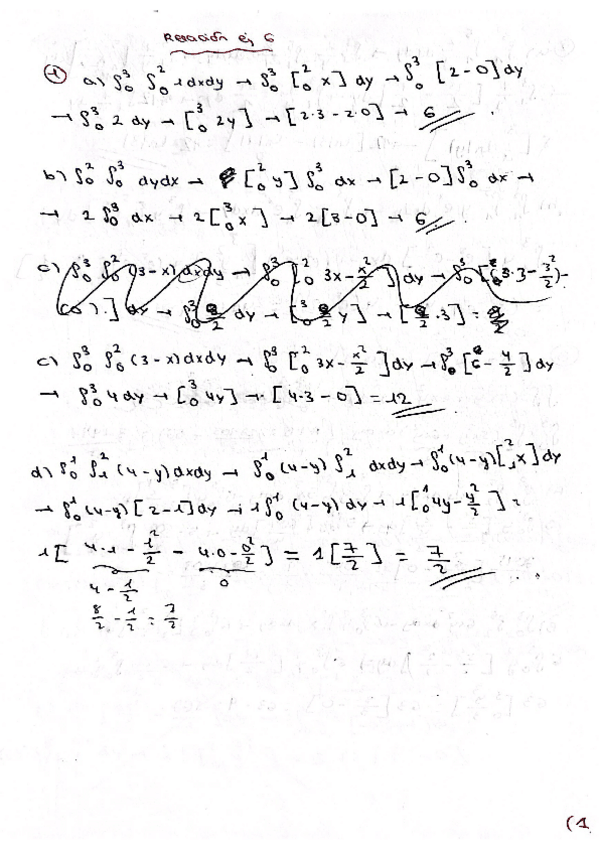 Relación ej 6
① a) ∫₀³ ∫₀² 1 dxdy → ∫₀³ [₀² x] dy → ∫₀³ [2-0] dy
→ ∫₀³ 2 dy → [₀³ 2y] → [2·3 - 2·0] → 6
b) ∫₀² ∫₀³ dydx → [₀² y] ∫₀³ dx → [2-0] ∫₀³ dx →
→ 2 ∫₀³ dx → 2 [₀³ x] → 2[3-0] → 6
c) ∫₀³ ∫₀² (3-x) dxdy → ∫₀³ [₀² 3x - x²/2] dy → ∫₀³
dy → ∫₀³
c) ∫₀³ ∫₀² (3-x) dxdy → ∫₀³ [₀² 3x - x²/2] dy → ∫₀³ [6 - 4/2] dy
→ ∫₀³ 4 dy → [₀³ 4y] → [4·3 - 0] = 12
d) ∫₀¹ ∫₁² (4-y) dxdy → ∫₀¹ (4-y) ∫₁² dxdy → ∫₀¹ (4-y) [₁² x] dy
→ ∫₀¹ (4-y) [2-1] dy → 1 ∫₀¹ (4-y) dy → 1 [₀¹ 4y - y²/2] =
1 [4·1 - 1²/2 - 4·0 - 0²/2] = 1 [7/2] = 7/2
4 - 1/2 0
8/2 - 1/2 = 7/2
(1